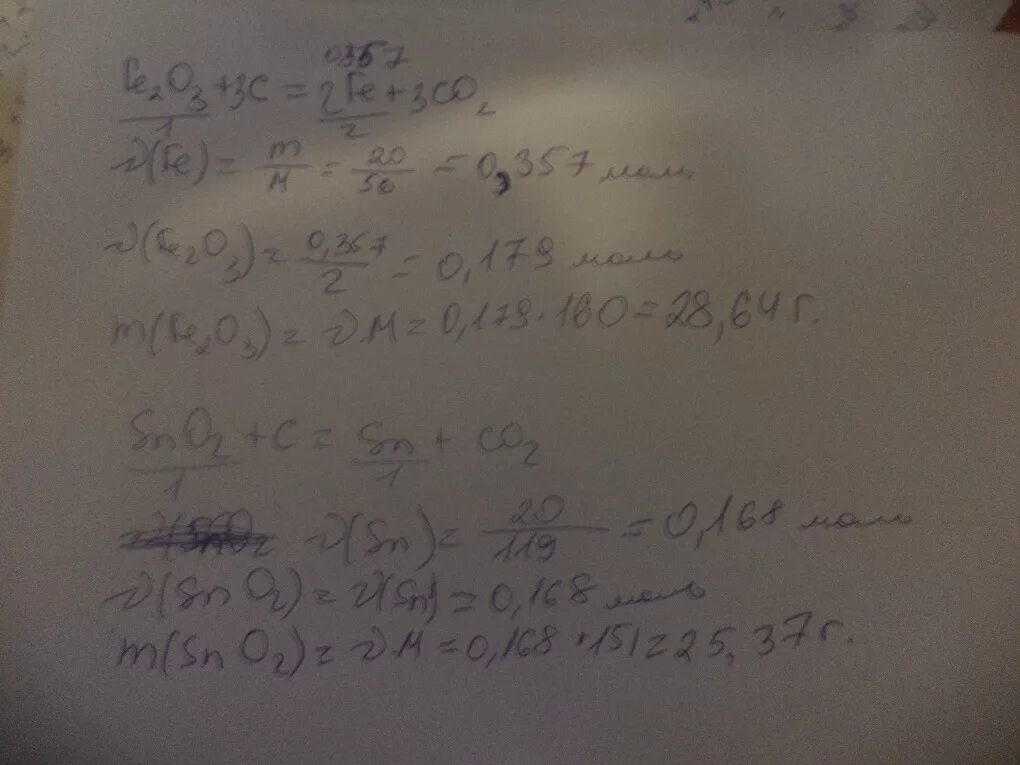 0,357
Fe₂O₃ + 3C = 2Fe + 3CO₂
1 2
ν(Fe) = m/M = 20/56 = 0,357 моль
ν(Fe₂O₃) = 0,357/2 = 0,179 моль
m(Fe₂O₃) = ν.M = 0,179·160 = 28,64 г.
SnO₂ + C = Sn + CO₂
1 1
ν(Sn) = 20/119 = 0,168 моль
ν(SnO₂) = ν(Sn) = 0,168 моль
m(SnO₂) = ν.M = 0,168·151 = 25,37 г.